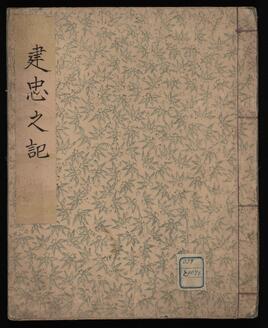 建忠之記